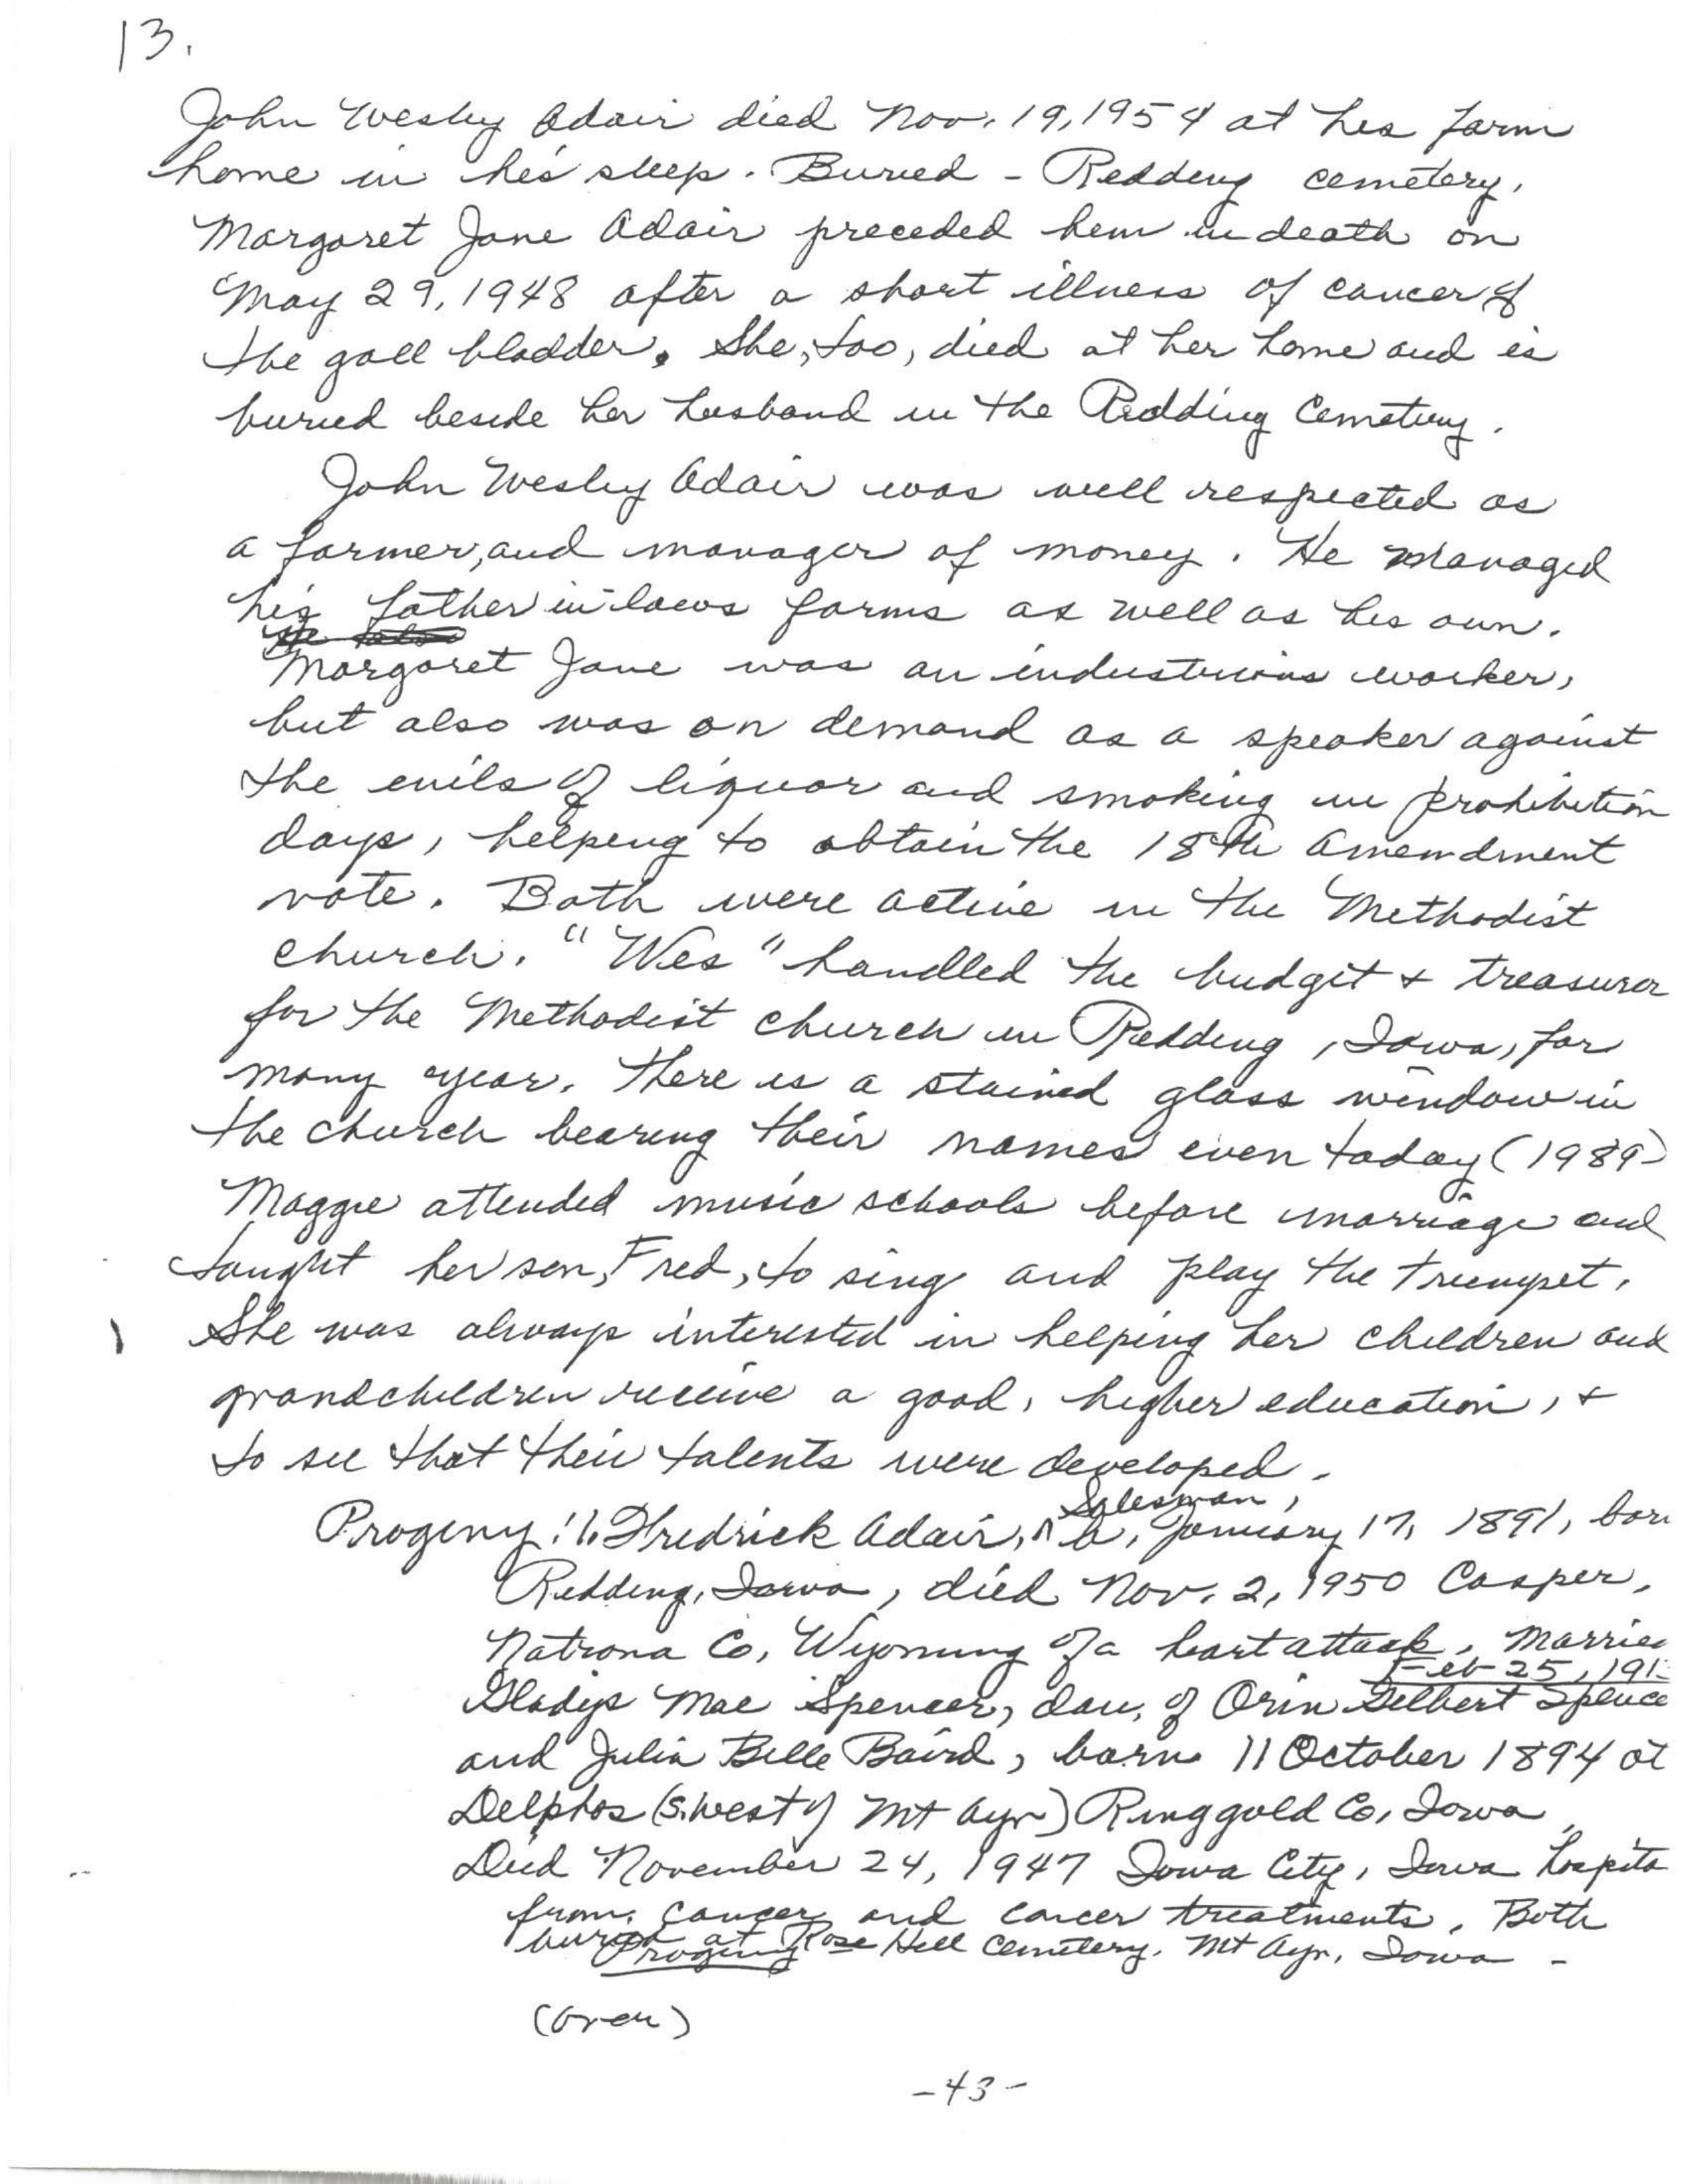 13.
John Wesley Adair died Nov. 19, 1954 at his farm
home in his sleep. Buried - Redding cemetery,
Margaret Jane Adair preceded him in death on
May 29, 1948 after a short illness of cancer of
the gall bladder. She, too, died at her home and is
buried beside her husband in the Redding Cemetery.
John Wesley Adair was well respected as
a farmer, and manager of money. He managed
his father in laws farms as well as his own.
Margaret Jane was an industrious worker,
but also was on demand as a speaker against
the evils of liquor and smoking in prohibition
days, helping to obtain the 18th Amendment
vote. Both were active in the Methodist
church. "Wes" handled the budget + treasurer
for the Methodist church in Redding, Iowa, for
many year. There is a stained glass window in
the church bearing their names even today (1989)
Maggie attended music schools before marriage and
taught her son, Fred, to sing and play the trumpet.
She was always interested in helping her children and
grandchildren receive a good, higher education, +
to see that their talents were developed.
Salesman,
Progeny: 1. Fredrick Adair, ^ b. January 17, 1891, born
Redding, Iowa, died Nov. 2, 1950 Casper,
Natrona Co, Wyoming of a heart attack. Married
Feb 25, 191
Gladys Mae Spencer, dau. of Orin Gilbert Spence
and Julia Belle Baird, born 11 October 1894 at
Delphos (S. west of Mt Ayr) Ringgold Co, Iowa,
Died November 24, 1947 Iowa City, Iowa hospita
from cancer and cancer treatments. Both
buried at Rose Hill Cemetery. Mt Ayr, Iowa -
Progeny
(over)
-43-